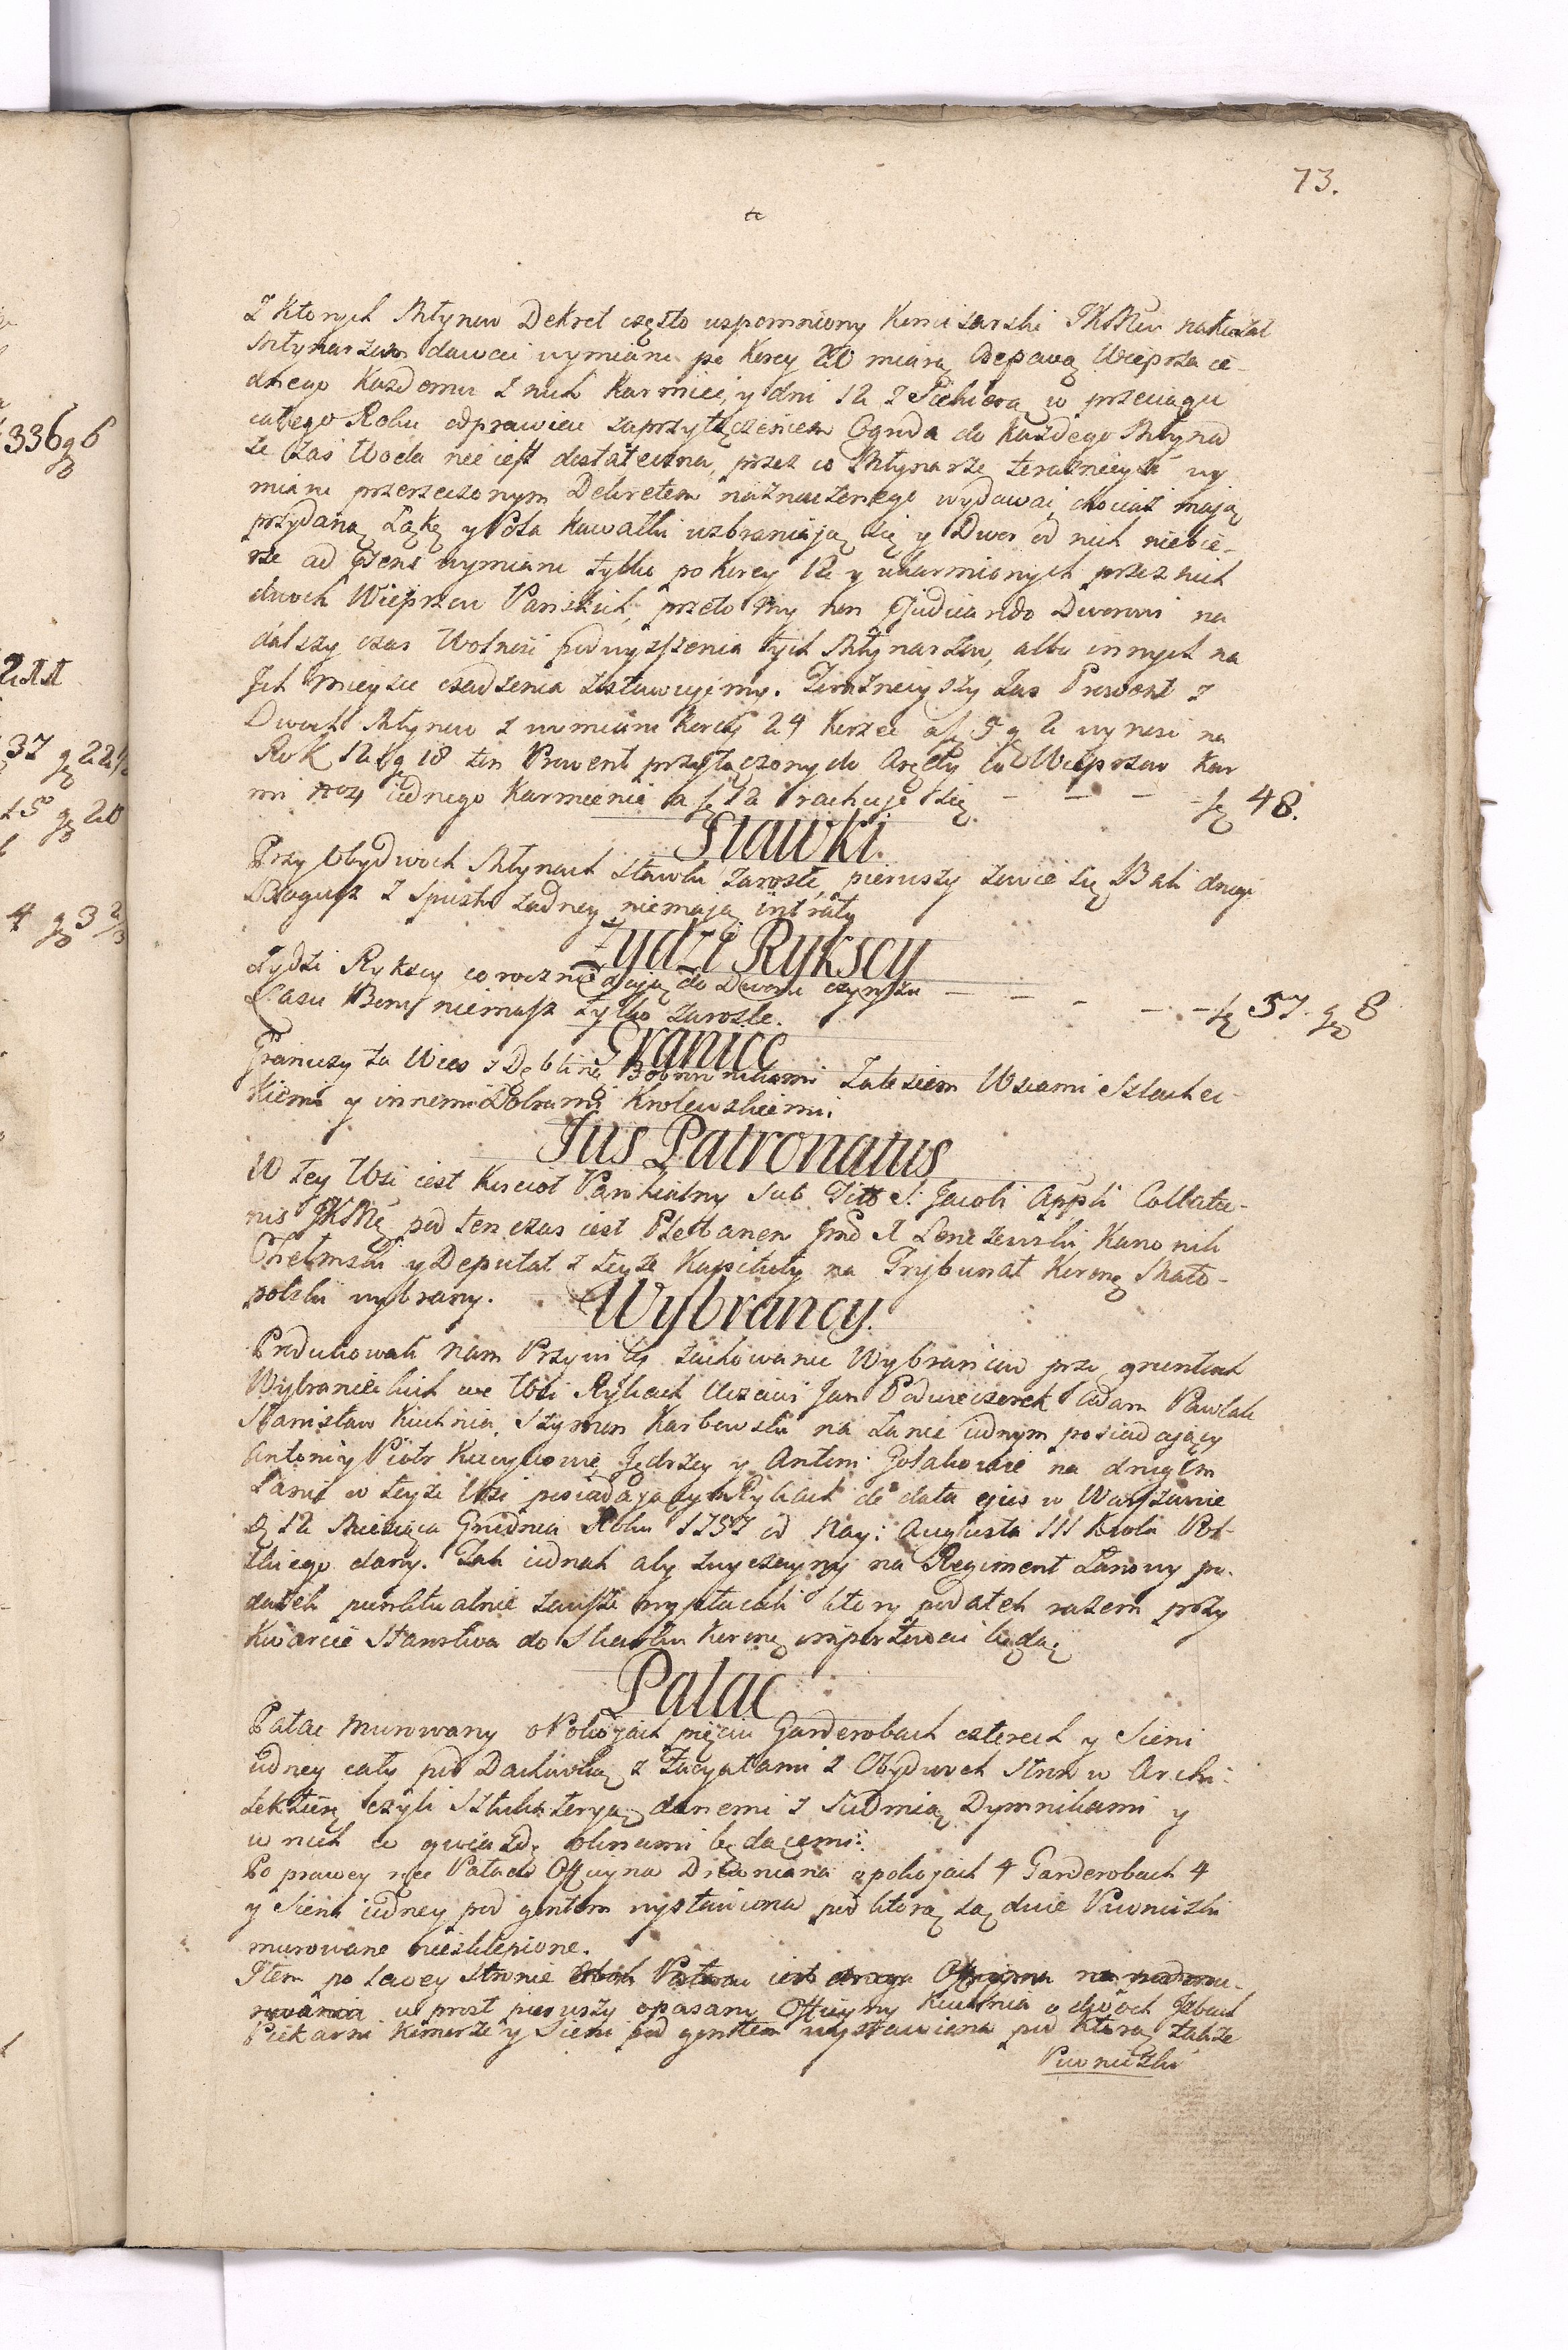 73.
Z Ktorych Młynow Dekret często wspomniony Komisarski JKMCi nakazał
Młynarzom dawać wymiaru po Korcy 20 miarą Osepową Wieprza ie-
dnego Kazdemu z nich Karmić, y dni 12 z Siekierą w przeciągu
całego Roku odprawiać zaprzyłączeniem Ogroda do Kazdego Młyna
ze zas Woda nie iest dostateczna, przez co Młynarze teraznieysi wy
miaru przerzeczonym Dekretem naznaczonego wydawać, chociaż mają
przydaną Łąkę y Pola Kawałki wzbraniają się y Dwor od nich niebie-
rze ad praesens wymiaru tylko po Korcy 12 y ukarmionych przez nich
dwoch Wieprzow Pańskich, przeto My non Ejudicando Dworowi na
dalszy czas Wolność podwyższenia tych Młynarzow, albo innych na
Ich mieysce osadzenia zostawujemy. Teraznieyszy zas Prowent z
Dwoch Młynow z wymiaru Korcy 24 Korzec a f 5 g 2 wynosi na
Rok 12 g 18 ten Prowent przyłączony do Arędy Od Wieprzow Kar
mi iednego Karmienie a f 12 rachuje się - - - - f 48.
Stawki.
Przy Obydwoch Młynach Stawki zarosłe, pierwszy zowie się Bak drugi
Rogusz z Spustu zadney niemają intraty
Żydzi Rykscy
Żydzi Rykscy corocznie dają do Dworu czynszu - - - - - f 57. g 8
Lasu Boru niemasz tylko zarosle.
Granice
Graniczy ta Wies z Dęblinę Bobrownikami Zalesiem Wsiami Szlachec-
kiemi y innemi Dobrami Krolewskiemi
Jus Patronatus
W tey Wsi iest Kościoł Parohialny Sub Titto S: Jacobi Appli Collatio-
nis JKMCi pod ten czas iest Plebanem Imć X Lenczewski, Kanonik
Chełmski y Deputat z teyże Kapituły na Trybunał Koronę Mało-
polski wybrany.
Wybrancy.
Produkowali nam Przywiley zachowanie Wybrańcow przy gruntach
Wybranieckich we Wsi Rykach Uczciwi Jan Podwieczorek Adam Pawlak
Stanisław Kuchnia, Szymon Karbowski na Łanie iednym posiadający
Antoni y Piotr Jędrzey y Antoni na drugim
Łanie w teyże Wsi posiadającym Rykach de data ejus w Warszawie
D 12 Miesiąca Grudnia Roku 1757 od Nay: Augusta III Krola Pol-
skiego dany. Tak iednak aby zwyczayny na Regiment Łanowy po-
datek punktualnie zawsze wypłacali ktory podatek razem przy
Kwarcie Starostwa do Skarbu Koronę importować będą
Palac
Pałac Murowany o Pokojach pięciu Garderobach czterech y Sieni
iedney cały pod Dachowką z Facyatami z Obydwoch Stron w Archi:
tekturę czyli Sztukateryą danemi z siedmią Dymnikami y
w nich w gwiazdę oknami będącemi:
Po prawey ręce Pałacu Officyna Drewniana o pokojach 4 Garderobach 4
y Sieni iedney pod gontem wystawiona pod ktorą są dwie Piwniczki
murowane niesklepione.
Item po lewey Stronie Pałacu iest druga Officyna na podmu-
rowaniu w prost pierwszy opasany Officyny Kuchnia o dwoch Izbach
Piekarni Komorze y Sieni pod gontem wystawiona pod Ktorą także
Piwniczki
336 g 6
211
37 g 22 1/2
15 g 20
4 g 3 2/3